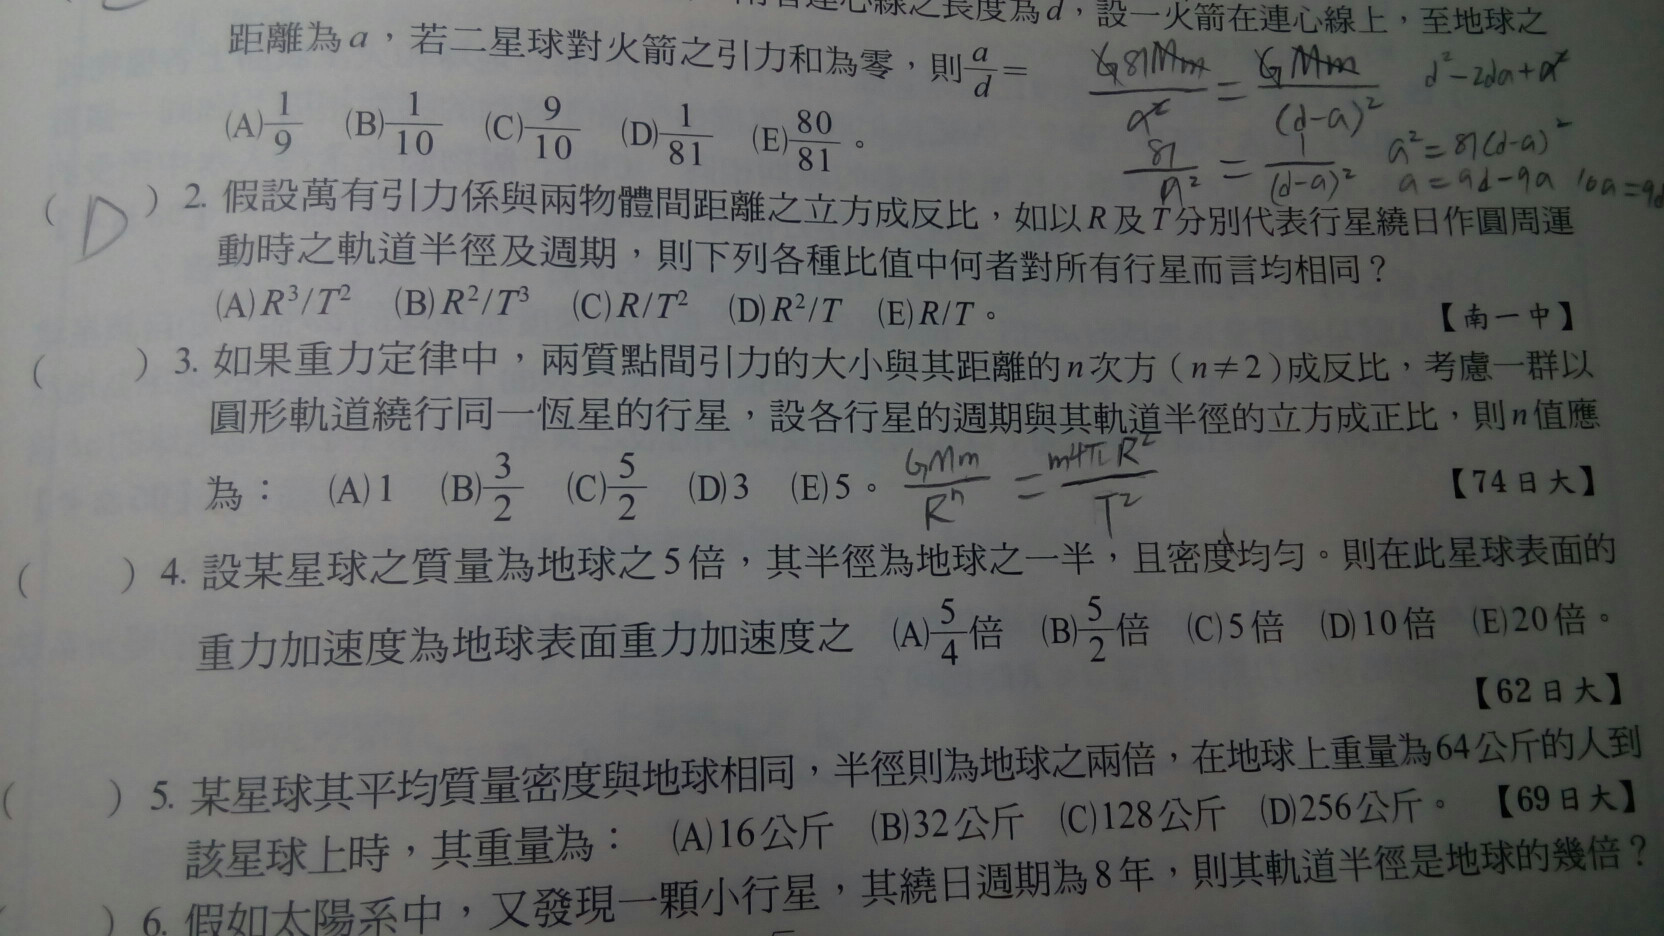 連心線之長度為d，設一火箭在連心線上，至地球之
距離為a，若二星球對火箭之引力和為零，則a/d=
(A)1/9 (B)1/10 (C)9/10 (D)1/81 (E)80/81。
G81Mm/a² = GMm/(d-a)²
d²-2da+a²
81/a² = 1/(d-a)²
a²=81(d-a)²
a=9d-9a 10a=9d
( D ) 2. 假設萬有引力係與兩物體間距離之立方成反比，如以R及T分別代表行星繞日作圓周運
動時之軌道半徑及週期，則下列各種比值中何者對所有行星而言均相同？
(A)R³/T² (B)R²/T³ (C)R/T² (D)R²/T (E)R/T。 【南一中】
( ) 3. 如果重力定律中，兩質點間引力的大小與其距離的n次方（n≠2）成反比，考慮一群以
圓形軌道繞行同一恆星的行星，設各行星的週期與其軌道半徑的立方成正比，則n值應
為： (A)1 (B)3/2 (C)5/2 (D)3 (E)5。 【74日大】
GMm/Rⁿ = m4πR²/T²
( ) 4. 設某星球之質量為地球之5倍，其半徑為地球之一半，且密度均勻。則在此星球表面的
重力加速度為地球表面重力加速度之 (A)5/4倍 (B)5/2倍 (C)5倍 (D)10倍 (E)20倍。
【62日大】
( ) 5. 某星球其平均質量密度與地球相同，半徑則為地球之兩倍，在地球上重量為64公斤的人到
該星球上時，其重量為： (A)16公斤 (B)32公斤 (C)128公斤 (D)256公斤。 【69日大】
) 6. 假如太陽系中，又發現一顆小行星，其繞日週期為8年，則其軌道半徑是地球的幾倍？